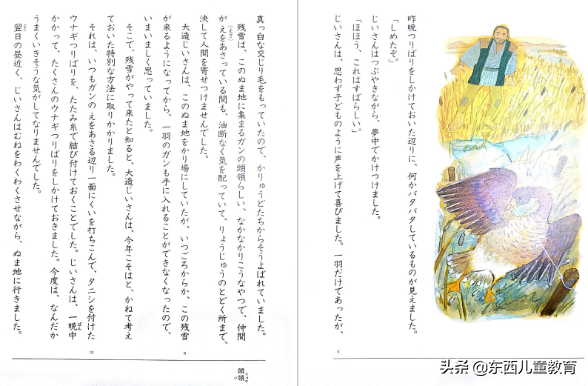 真っ白な交じり毛をもっていたので、かりゅうどたちからそうよばれていました。
残雪は、このぬま地に集まるガンの頭領らしい、なかなかりこうなやつで、仲間
がえをあさっている間も、油断なく気を配っていて、りょうじゅうのとどく所まで、
決して人間を寄せつけませんでした。
大造じいさんは、このぬま地をかり場にしていたが、いつごろからか、この残雪
が来るようになってから、一羽のガンも手に入れることができなくなったので、
いまいましく思っていました。
そこで、残雪がやって来たと知ると、大造じいさんは、今年こそはと、かねて考え
ておいた特別な方法に取りかかりました。
それは、いつもガンのえをあさる辺り一面にくいを打ちこんで、タニシを付けた
ウナギつりばりを、たたみ糸で結び付けておくことでした。じいさんは、一晩中
かかって、たくさんのウナギつりばりをしかけておきました。今度は、なんだか
うまくいきそうな気がしてなりませんでした。
翌日の昼近く、じいさんはむねをわくわくさせながら、ぬま地に行きました。
頭領
昨晩つりばりをしかけておいた辺りに、何かバタバタしているものが見えました。
「しめたぞ。」
じいさんはつぶやきながら、夢中でかけつけました。
「ほほう、これはすばらしい。」
じいさんは、思わず子どものように声を上げて喜びました。一羽だけであったが、
头条 @东西儿童教育